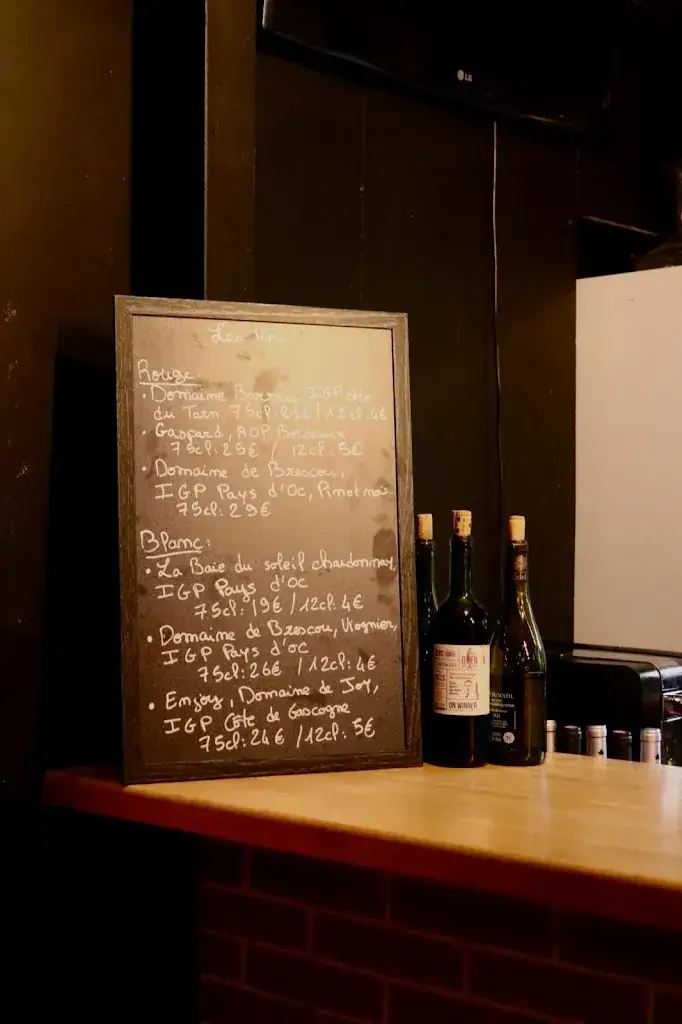 LG
Les Vins
Rouge:
• Domaine IGP côte
du Tarn 75cl: 21€ / 12cl: 4€
• Gaspard, AOP Bordeaux
75cl: 25€ / 12cl: 5€
• Domaine de Brescou,
IGP Pays d'Oc, Pinot noir
75cl: 29€
Blanc:
• La Baie du soleil chardonnay,
IGP Pays d'OC
75cl: 19€ / 12cl: 4€
• Domaine de Brescou, Viognier,
IGP Pays d'oc
75cl: 26€ / 12cl: 4€
• Enjoy, Domaine de Joÿ,
IGP Côte de Gascogne
75cl: 24€ / 12cl: 5€
UN WINNER